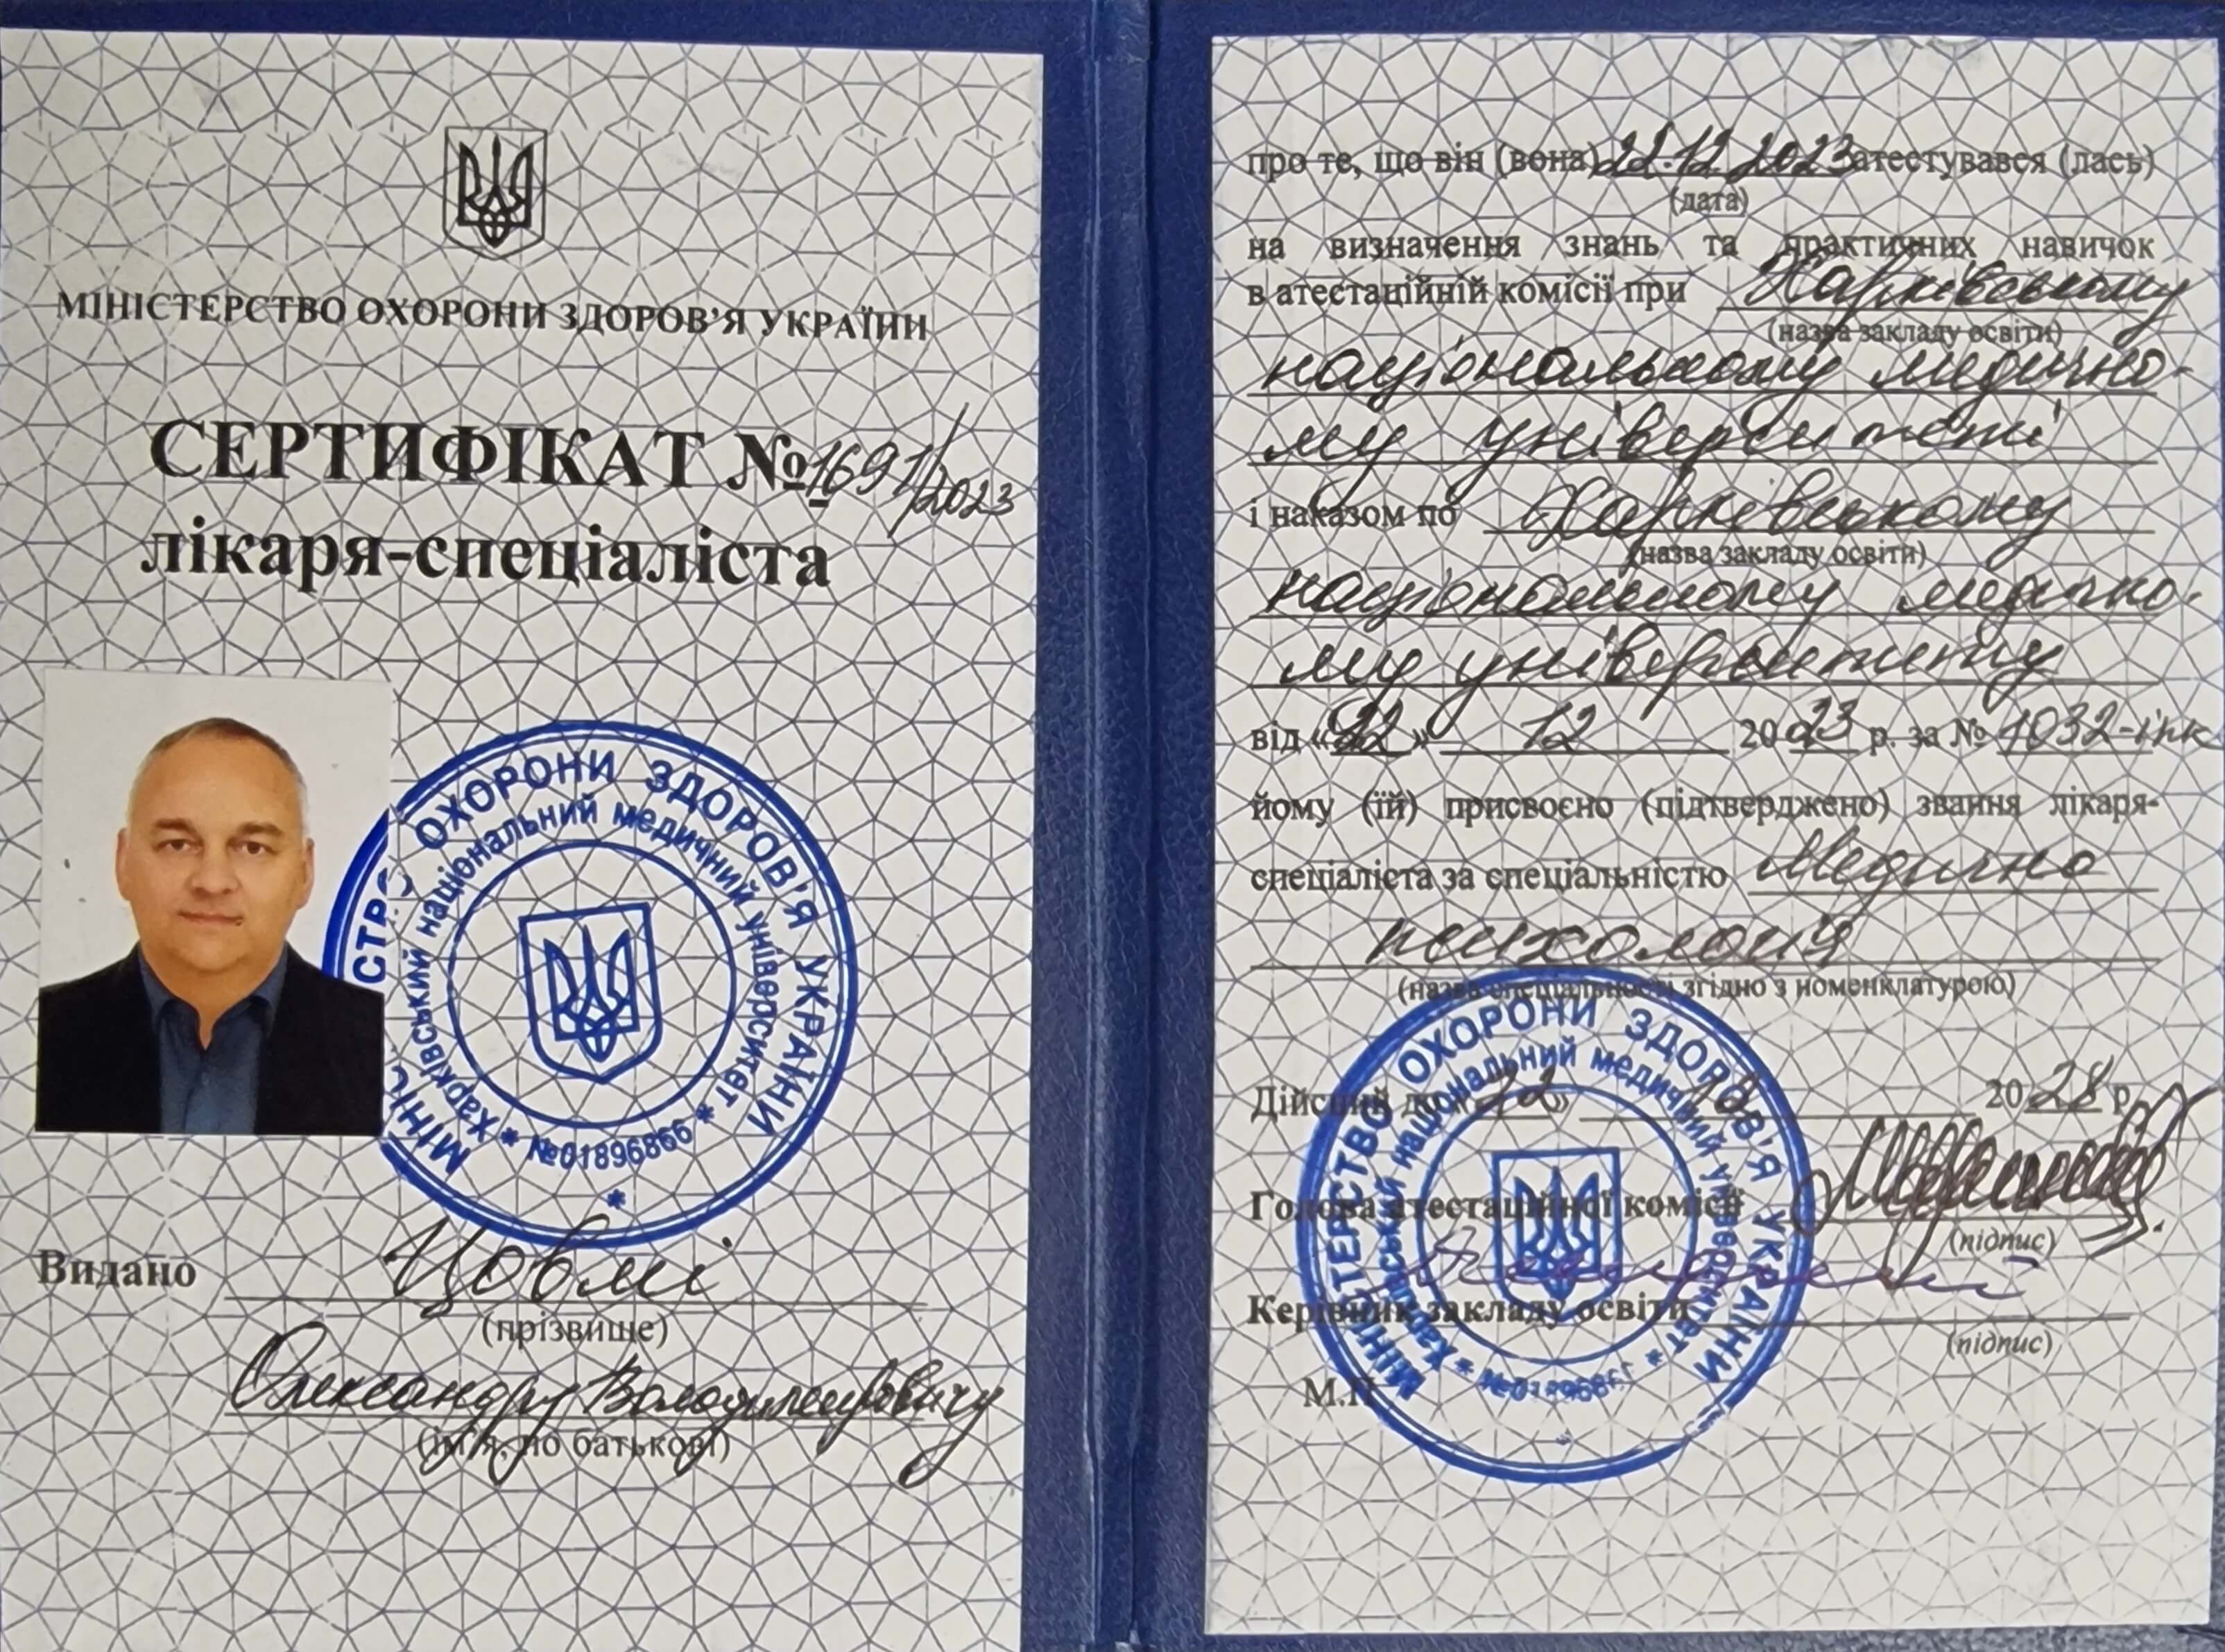 МІНІСТЕРСТВО ОХОРОНИ ЗДОРОВ'Я УКРАЇНИ
СЕРТИФІКАТ № 1691/2023
лікаря-спеціаліста
МІНІСТЕРСТВО ОХОРОНИ ЗДОРОВ'Я УКРАЇНИ
Харківський національний медичний університет
* №01896866 *
*
Видано Цовмі
(прізвище)
Олександру Володимировичу
(ім'я, по батькові)
про те, що він (вона) 22.12.2023 атестувався (лась)
(дата)
на визначення знань та практичних навичок
в атестаційній комісії при Харківському
(назва закладу освіти)
національному медично-
му університеті
і наказом по Харківському
(назва закладу освіти)
національному медично-
му університету
від «22» 12 2023 р. за № 1032-інк
йому (їй) присвоєно (підтверджено) звання лікаря-
спеціаліста за спеціальністю Медична
психологія
(назва спеціальності згідно з номенклатурою)
Дійсний до «22» 12 2028 р.
Голова атестаційної комісії
(підпис)
Керівник закладу освіти
(підпис)
М.П.
МІНІСТЕРСТВО ОХОРОНИ ЗДОРОВ'Я УКРАЇНИ
Харківський національний медичний університет